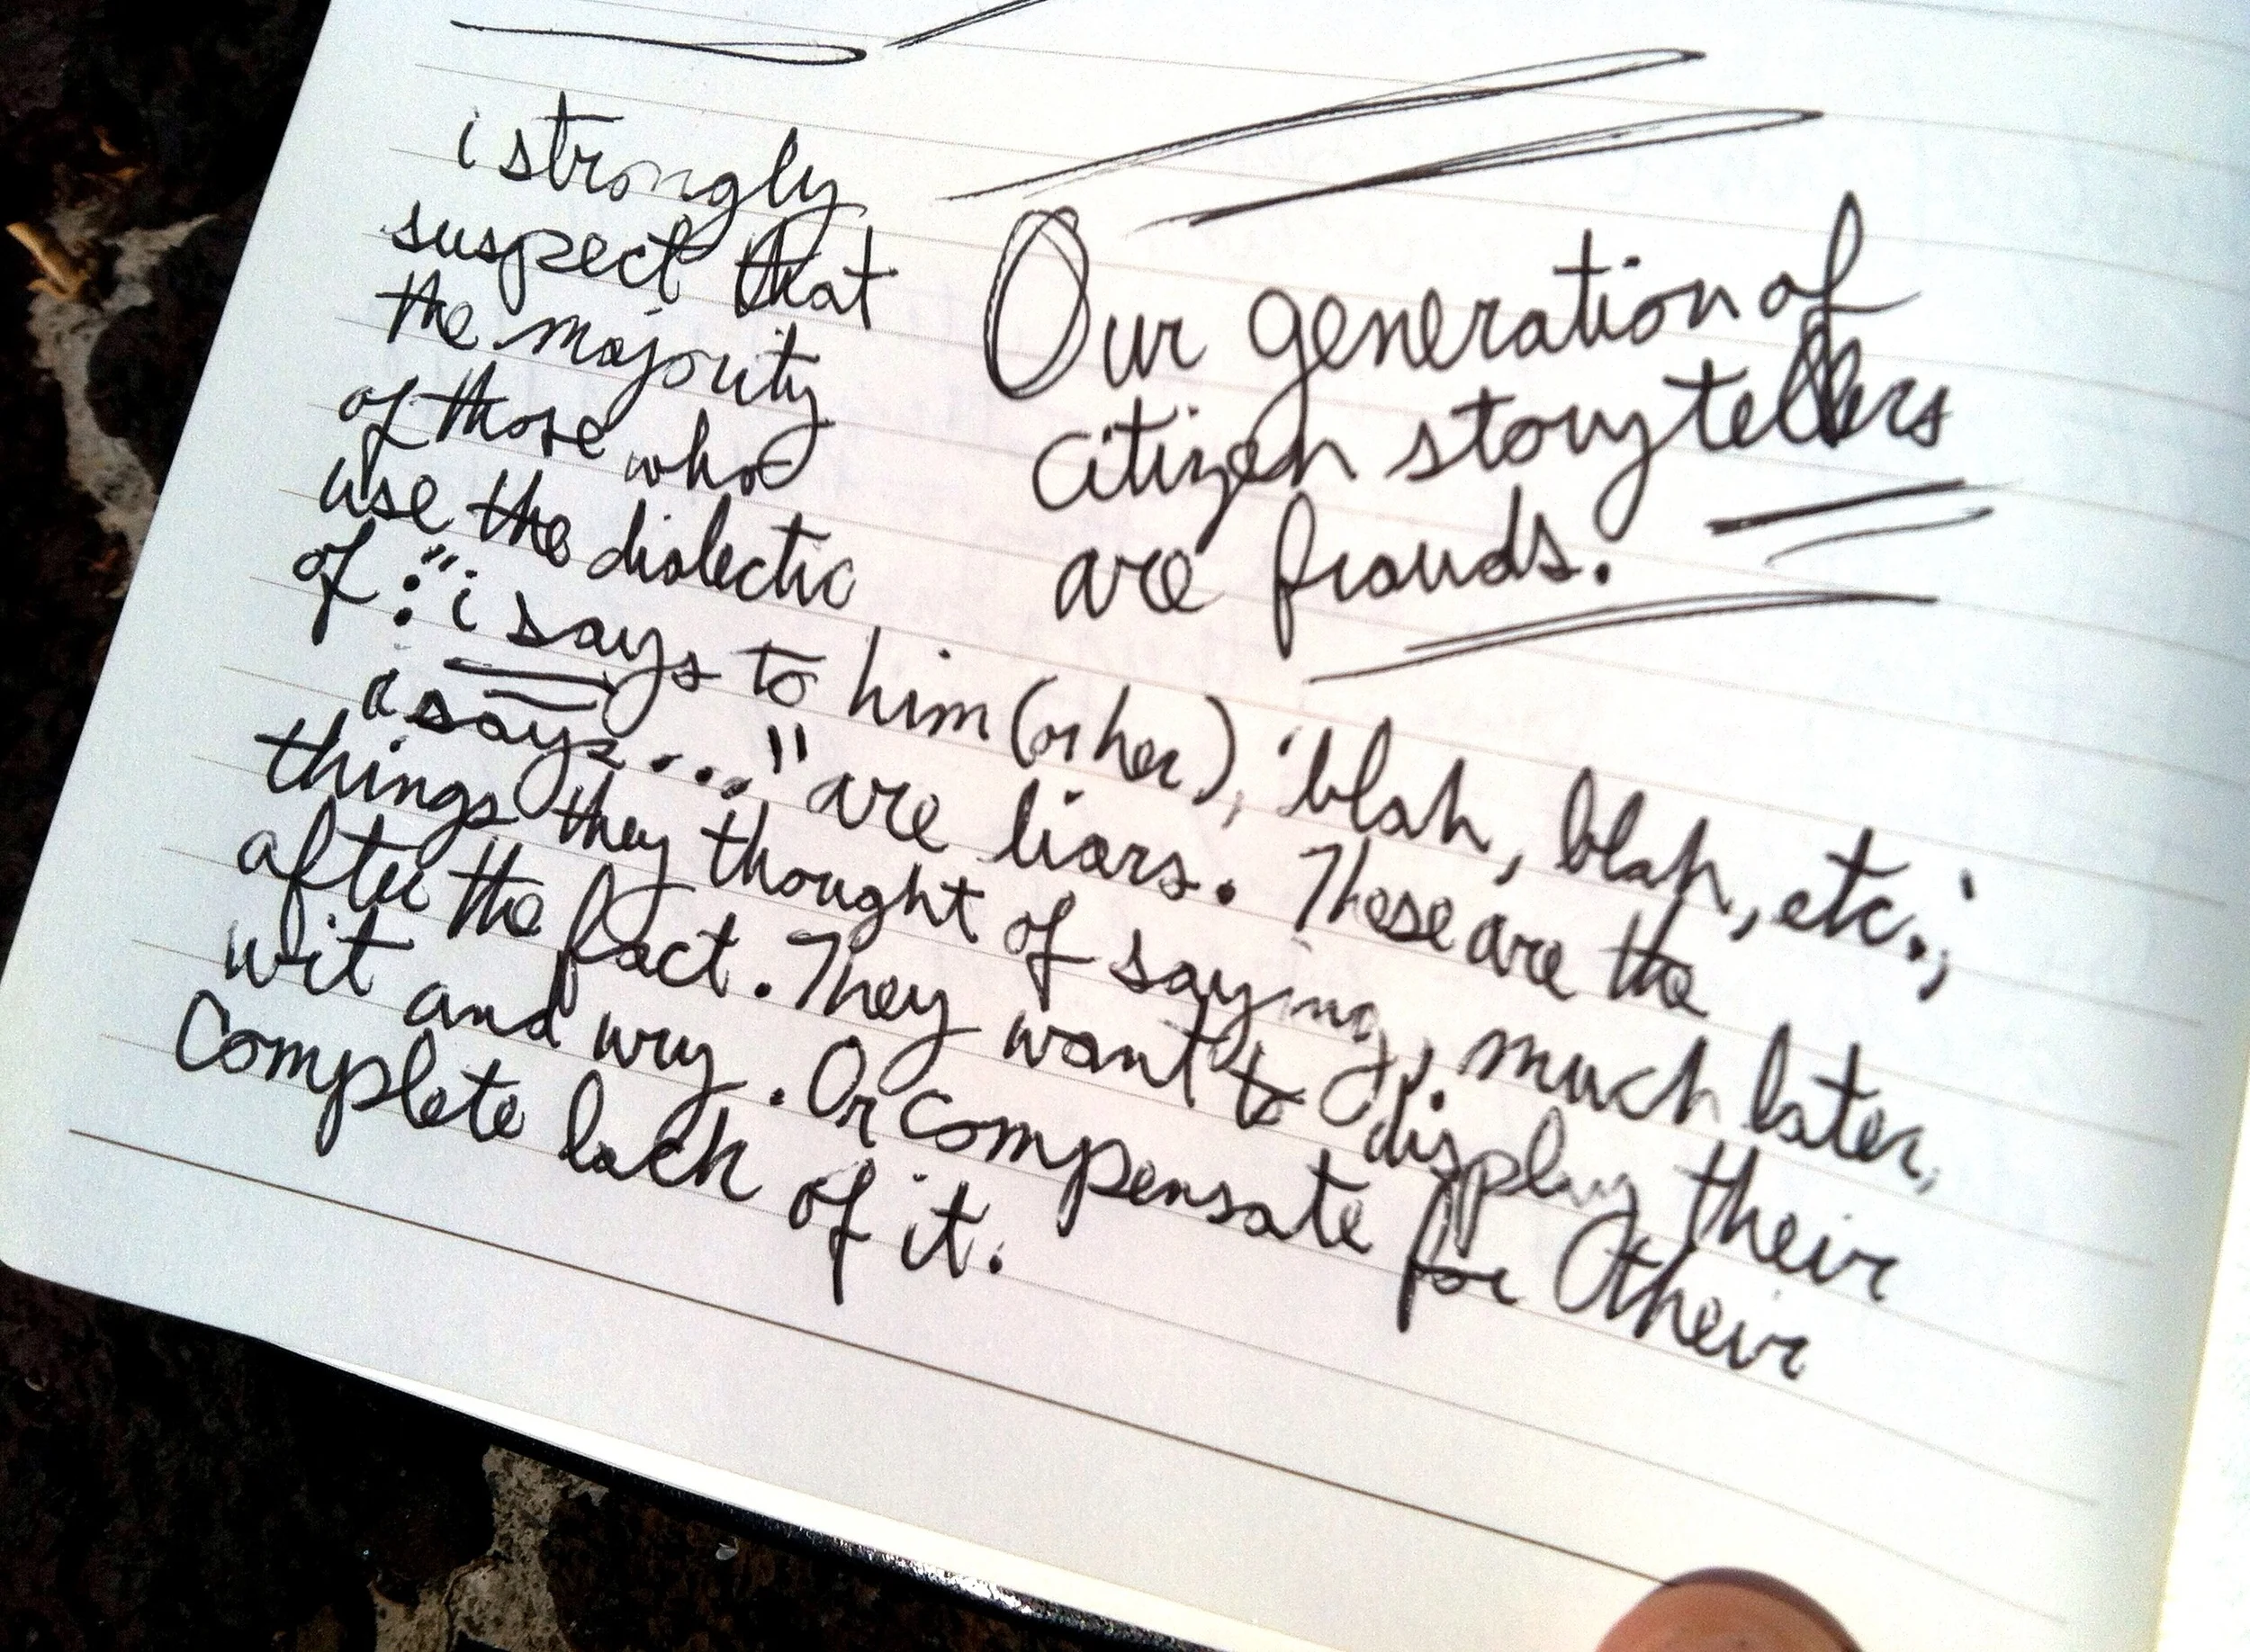 i strongly
suspect that
the majority
of those who
use the dialectic
of : "i says to him (or her), 'blah, blah, etc.,'
i says...." are liars. These are the
things they thought of saying, much later,
after the fact. They want to display their
wit and wry. Or compensate for their
complete lack of it.
Our generation of
citizen storytellers
are frauds.